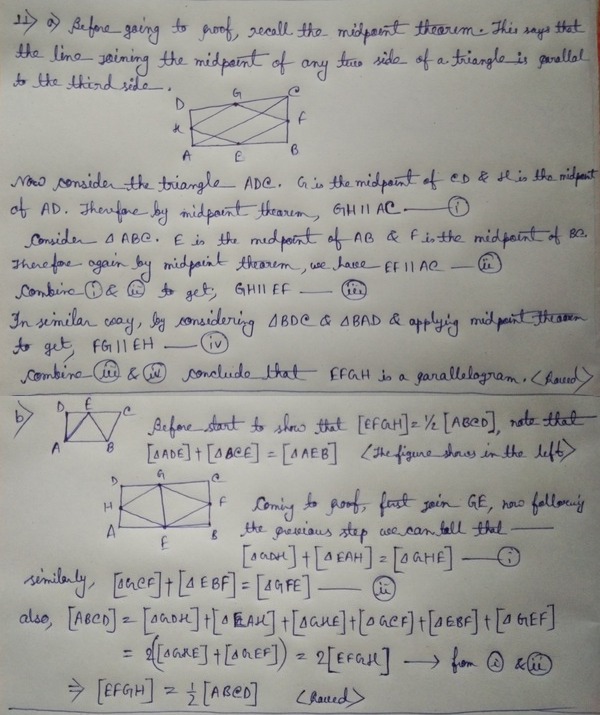 11) a) Before going to proof, recall the midpoint theorem. This says that
the line joining the midpoint of any two side of a triangle is parallel
to the third side.
D G C
H F
A E B
Now consider the triangle ADC. G is the midpoint of CD & H is the midpoint
of AD. Therefore by midpoint theorem, GH || AC — (i)
Consider Δ ABC. E is the midpoint of AB & F is the midpoint of BC.
Therefore again by midpoint theorem, we have EF || AC — (ii)
Combine (i) & (ii) to get, GH || EF — (iii)
In similar way, by considering ΔBDC & ΔBAD & applying midpoint theorem
to get, FG || EH — (iv)
Combine (iii) & (iv) conclude that EFGH is a parallelogram. <Proved>
b) D E C
A B
Before start to show that [EFGH] = 1/2 [ABCD], note that
[ΔADE] + [ΔBCE] = [ΔAEB] <The figure shows in the left>
D G C
H F
A E B
Coming to proof, first join GE, now following
the previous step we can tell that —
[ΔGDH] + [ΔEAH] = [ΔGHE] — (i)
similarly, [ΔGCF] + [ΔEBF] = [ΔGFE] — (ii)
also, [ABCD] = [ΔGDH] + [ΔEAH] + [ΔGHE] + [ΔGCF] + [ΔEBF] + [ΔGEF]
= 2([ΔGHE] + [ΔGEF]) = 2[EFGH] → from (i) & (ii)
⇒ [EFGH] = 1/2 [ABCD] <Proved>